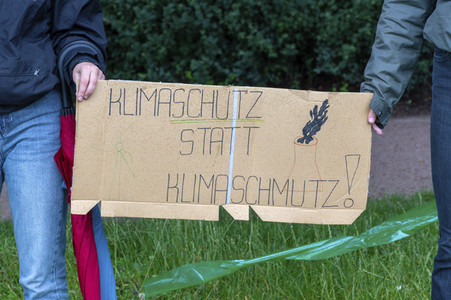 KLIMASCHUTZ
STATT
KLIMASCHMUTZ!